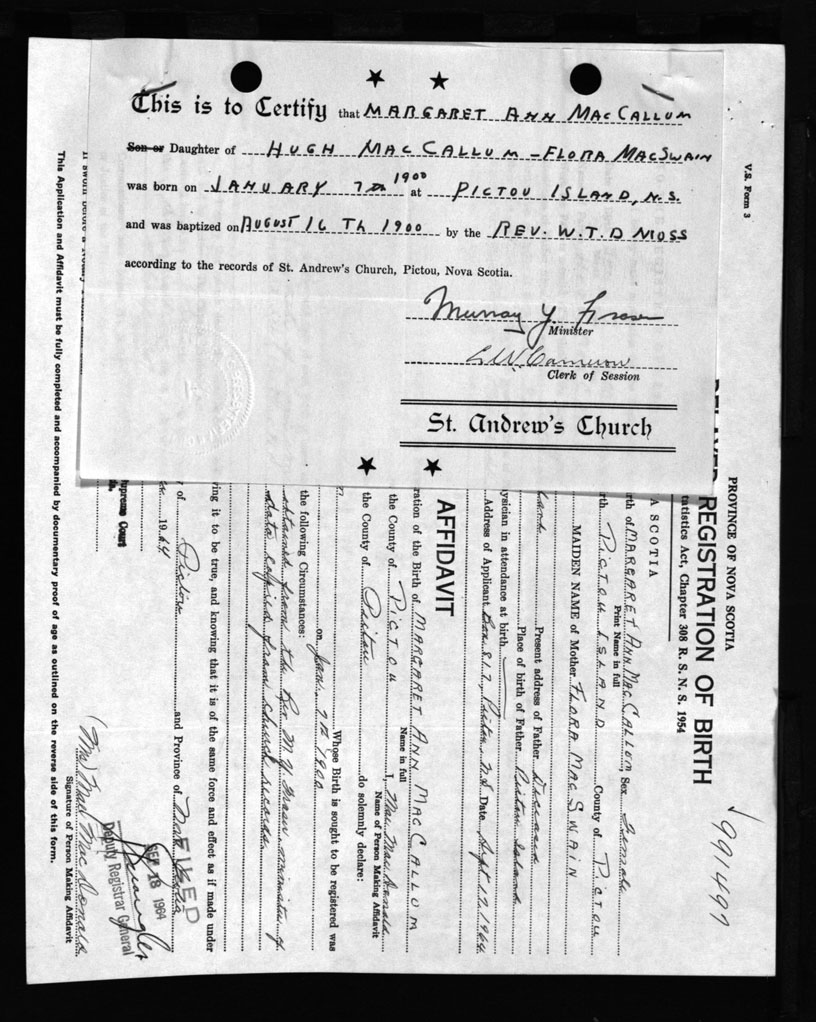 This is to Certify that MARGARET ANN MACCALLUM
Son or Daughter of HUGH MACCALLUM - FLORA MACSWAIN
was born on JANUARY 7th 1900 at PICTOU ISLAND, N.S.
and was baptized on AUGUST 16 TH 1900 by the REV. W.T.D MOSS
according to the records of St. Andrew's Church, Pictou, Nova Scotia.
Murray Y. Fraser
Minister
Clerk of Session
St. Andrew's Church
V.S. Form 3
PROVINCE OF NOVA SCOTIA
REGISTRATION OF BIRTH
tatistics Act, Chapter 308 R. S. N. S. 1954
991497
A SCOTIA
rth of MARGARET ANN MAC CALLUM, Sex Female
Print Name in full
rth PICTOU ISLAND County of PICTOU
MAIDEN NAME of Mother FLORA MAC SWAIN
land Present address of Father Deceased
Place of birth of Father Pictou Island
ysician in attendance at birth
Address of Applicant Box 817, Pictou, N.S. Date Sept 17, 1964
AFFIDAVIT
ration of the Birth of MARGARET ANN MAC CALLUM
Name in full
the County of PICTOU I, Mae MacDonald
Name of Person Making Affidavit
the County of Pictou do solemnly declare:
Whose Birth is sought to be registered was
on Jan. 7th 1900
the following Circumstances:
obtained from the Rev M Y Fraser minister of
church records.
ving it to be true, and knowing that it is of the same force and effect as if made under
of Pictou and Province of Nova Scotia
1964
FILED
SEP 18 1964
Deputy Registrar General
upreme Court
(Mrs) Mae MacDonald
Signature of Person Making Affidavit
If sworn before a Notary Public
This Application and Affidavit must be fully completed and accompanied by documentary proof of age as outlined on the reverse side of this form.